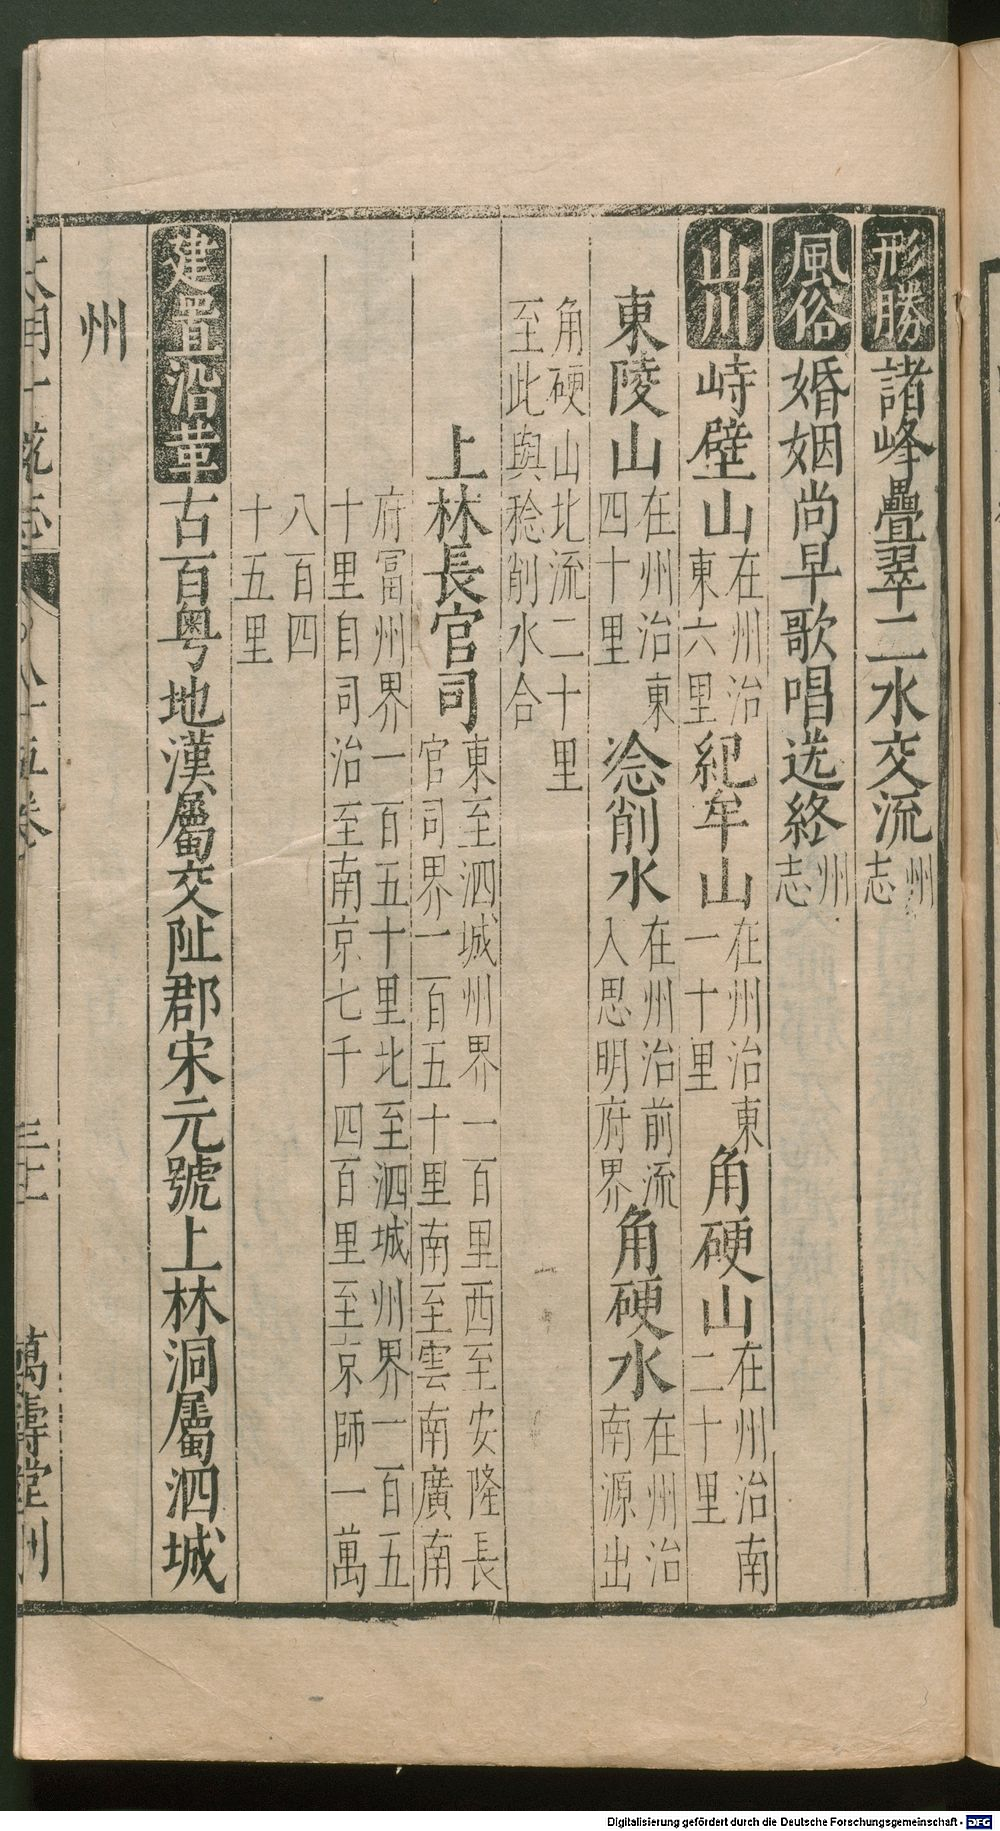 形勝諸峰疊翠二水交流州志
風俗婚姻尚早歌唱送終州志
山川峙壁山在州治東六里紀牟山在州治東一十里角硬山在州治南二十里
東陵山在州治東四十里淰削水在州治前流入思明府界角硬水在州治南源出
角硬山北流二十里至此與稔削水合
上林長官司東至泗城州界一百里西至安隆長官司界一百五十里南至雲南廣南
府富州界一百五十里北至泗城州界一百五十里自司治至南京七千四百里至京師一萬
八百四十五里
建置沿革古百粤地漢屬交阯郡宋元號上林洞屬泗城
州
大明一統志 八十五卷 萬壽堂刊
Digitalisierung gefördert durch die Deutsche Forschungsgemeinschaft - DFG